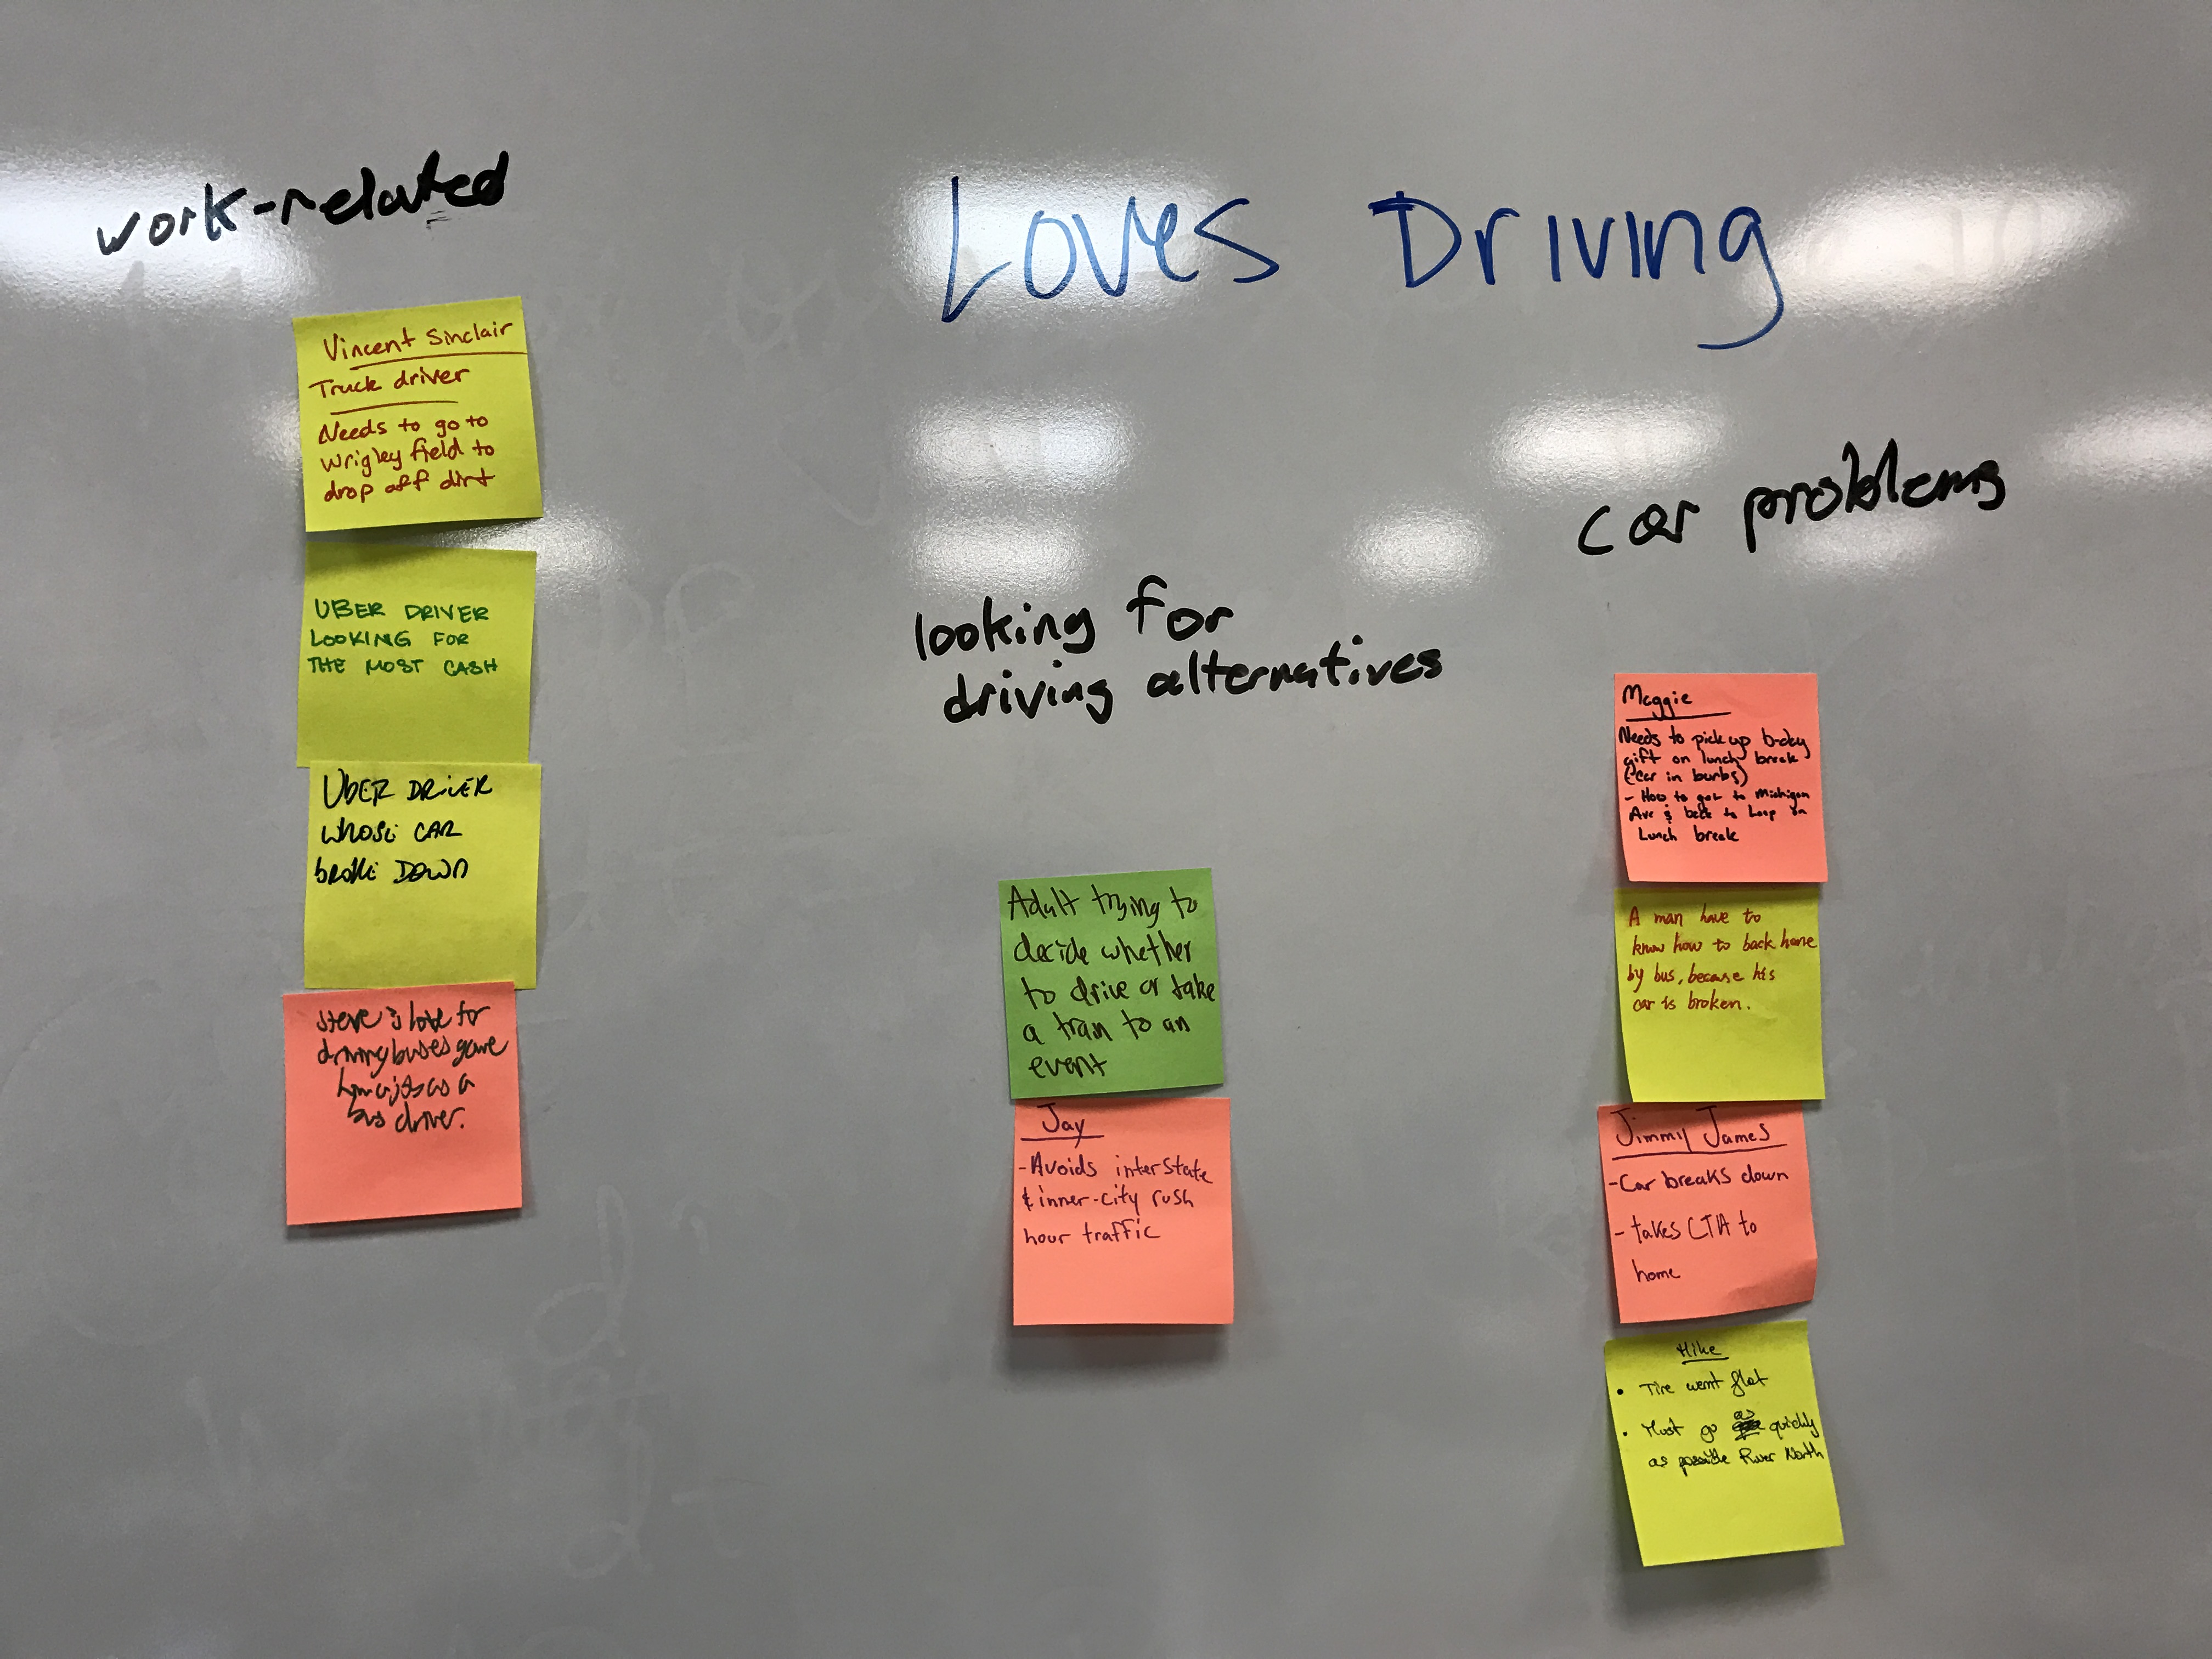 work-related
Loves Driving
Vincent Sinclair
Truck driver
Needs to go to
Wrigley field to
drop off dirt
UBER DRIVER
LOOKING FOR
THE MOST CASH
UBER DRIVER
WHOSE CAR
BROKE DOWN
Steve's love for
driving buses gave
him a job as a
bus driver.
looking for
driving alternatives
Adult trying to
decide whether
to drive or take
a train to an
event
Jay
-Avoids interstate
& inner-city rush
hour traffic
car problems
Maggie
Needs to pick up b-day
gift on lunch break
(car in burbs)
- How to get to Michigan
Ave & back to Loop on
Lunch break
A man have to
know how to back home
by bus, because his
car is broken.
Jimmy James
-Car breaks down
- takes CTA to
home
Mike
• Tire went flat
• Must go as quickly
as possible River North